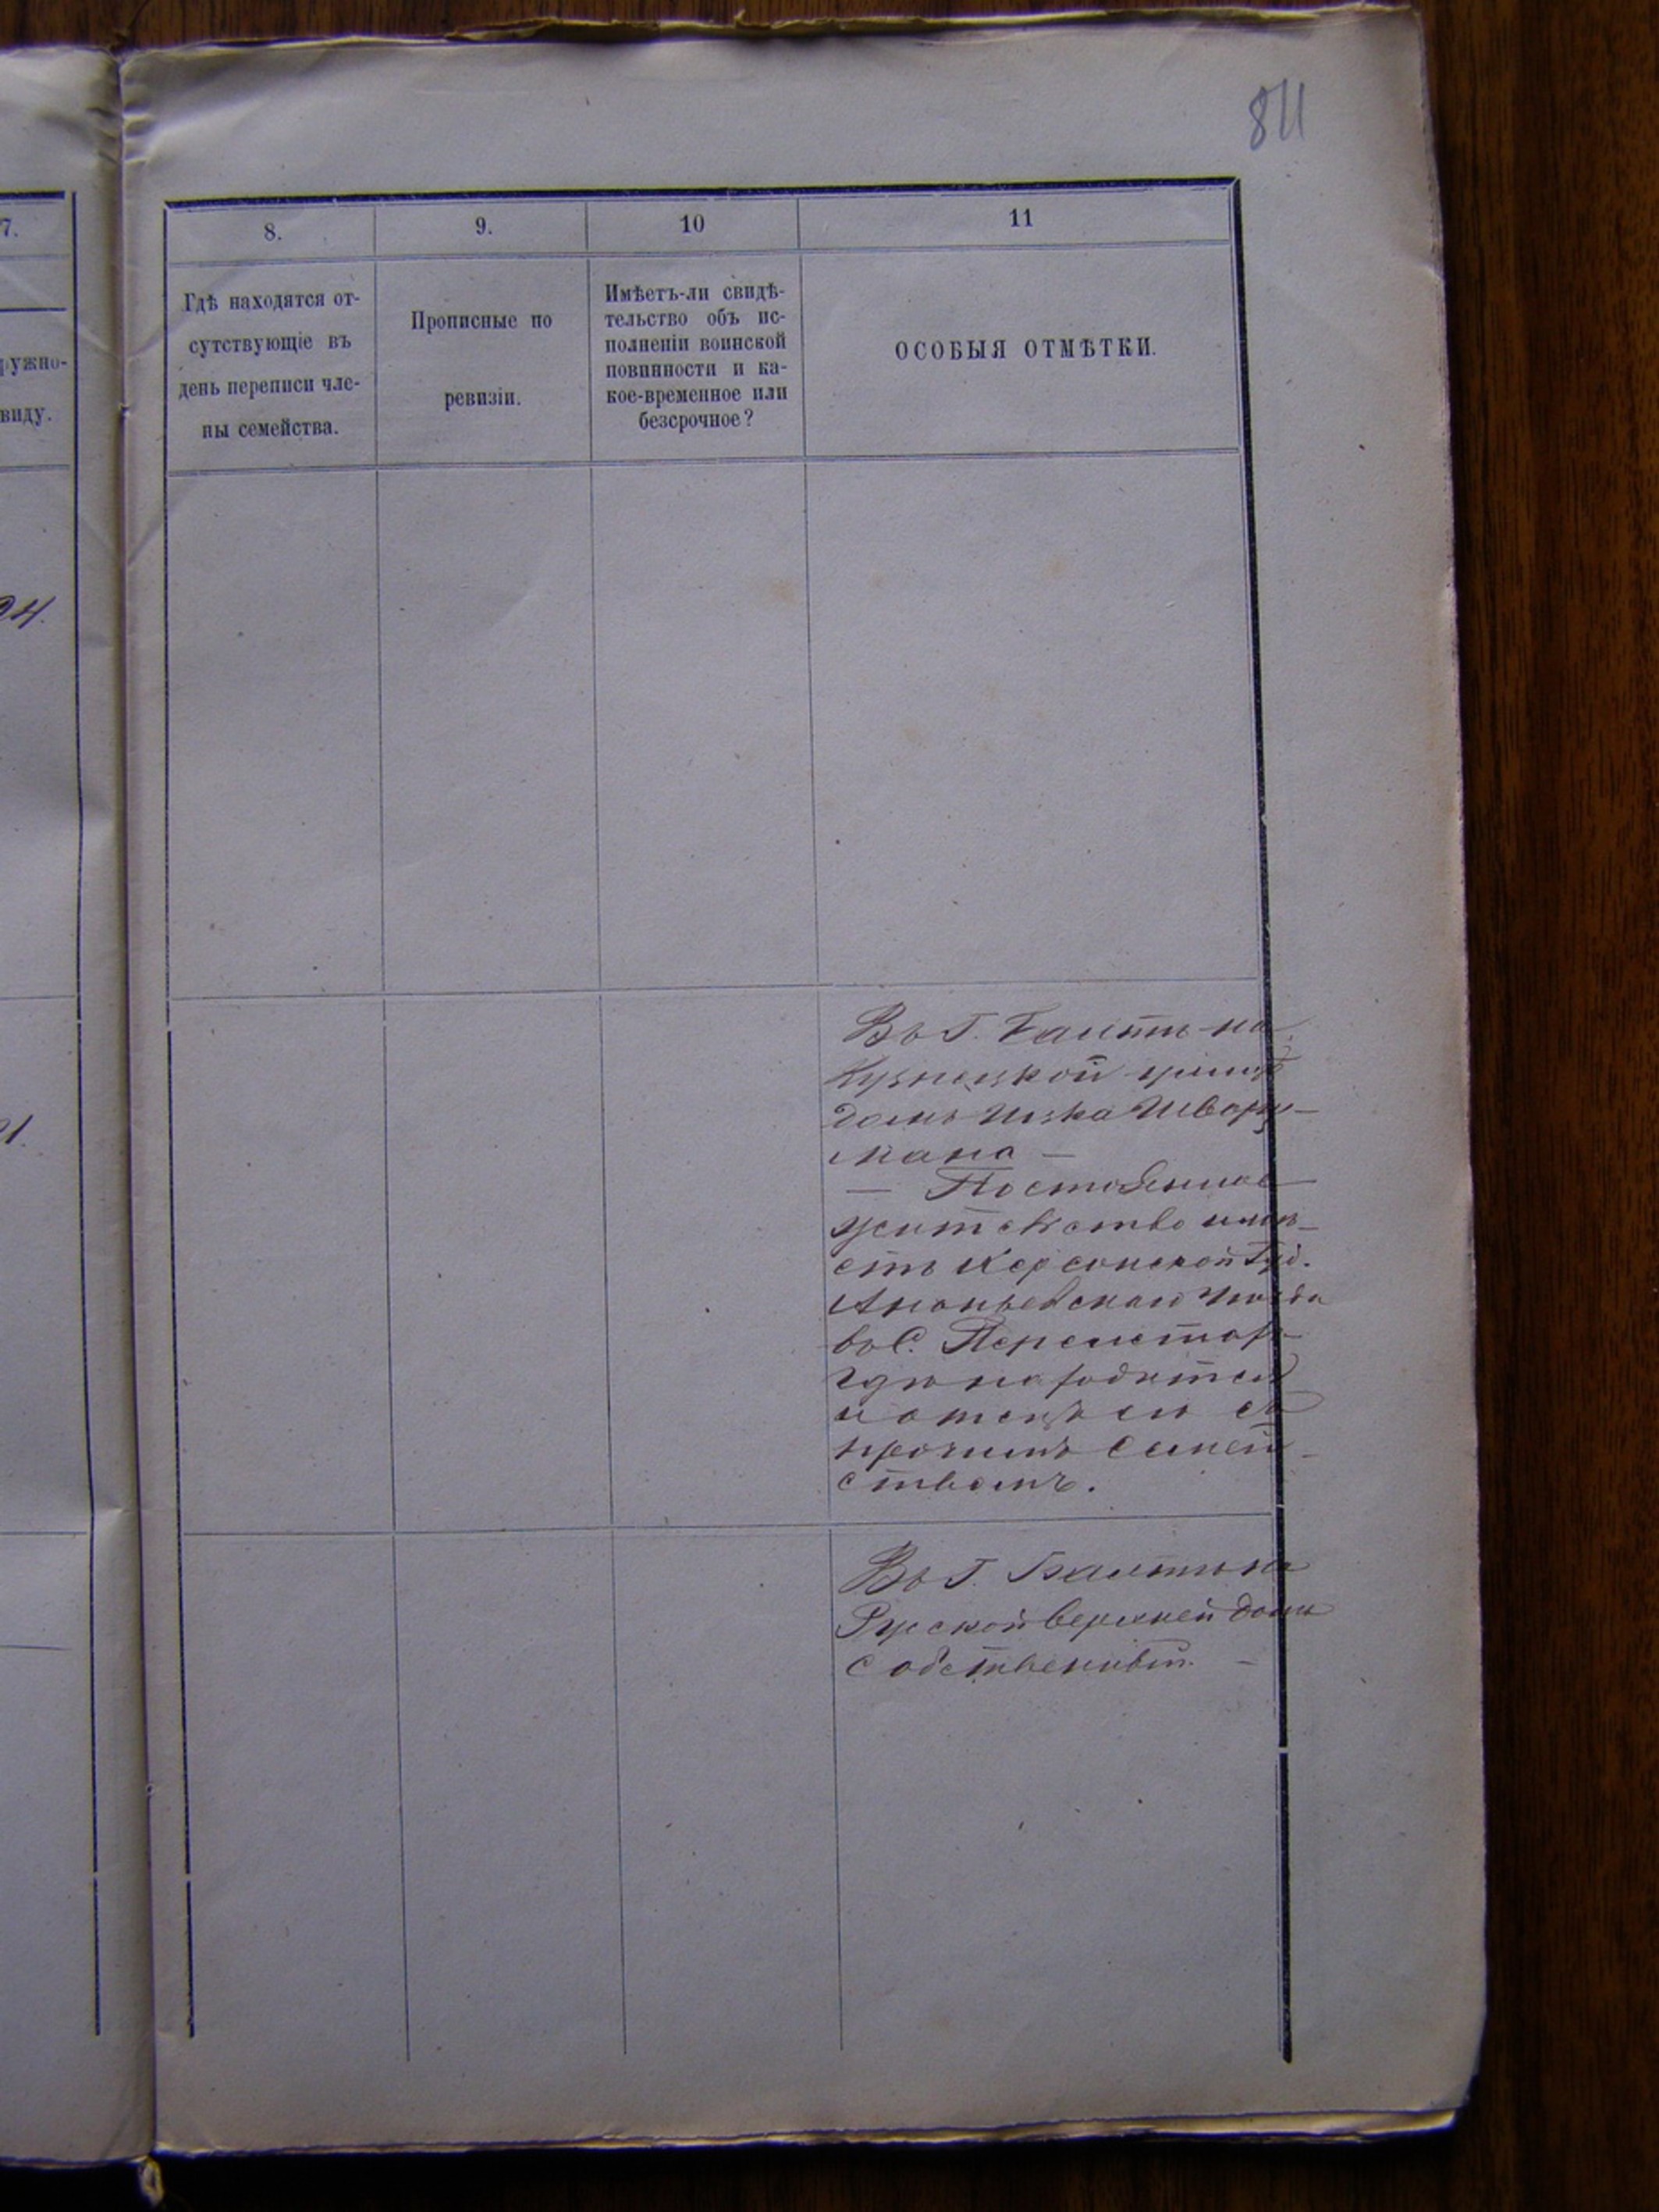 811
7.
8.
9.
10
11
ружно-
виду.
Гдѣ находятся от-
сутствующіе въ
день переписи чле-
ны семейства.
Прописные по
ревизіи.
Имѣетъ-ли свидѣ-
тельство объ ис-
полненіи воинской
повинности и ка-
кое-временное или
безсрочное?
ОСОБЫЯ ОТМѢТКИ.
Въ Г. Балтѣ на
Кузнецкой улицѣ
домъ Ицка Шварц-
мана —
— Постоянное
жительство имѣ-
етъ Херсонской Губ.
Ананьевскаго уѣзда
въ С.
гдѣ находится
и отецъ его съ
прочимъ Семей-
ствомъ.
Въ Г. Балтѣ на
Руской верхней домъ